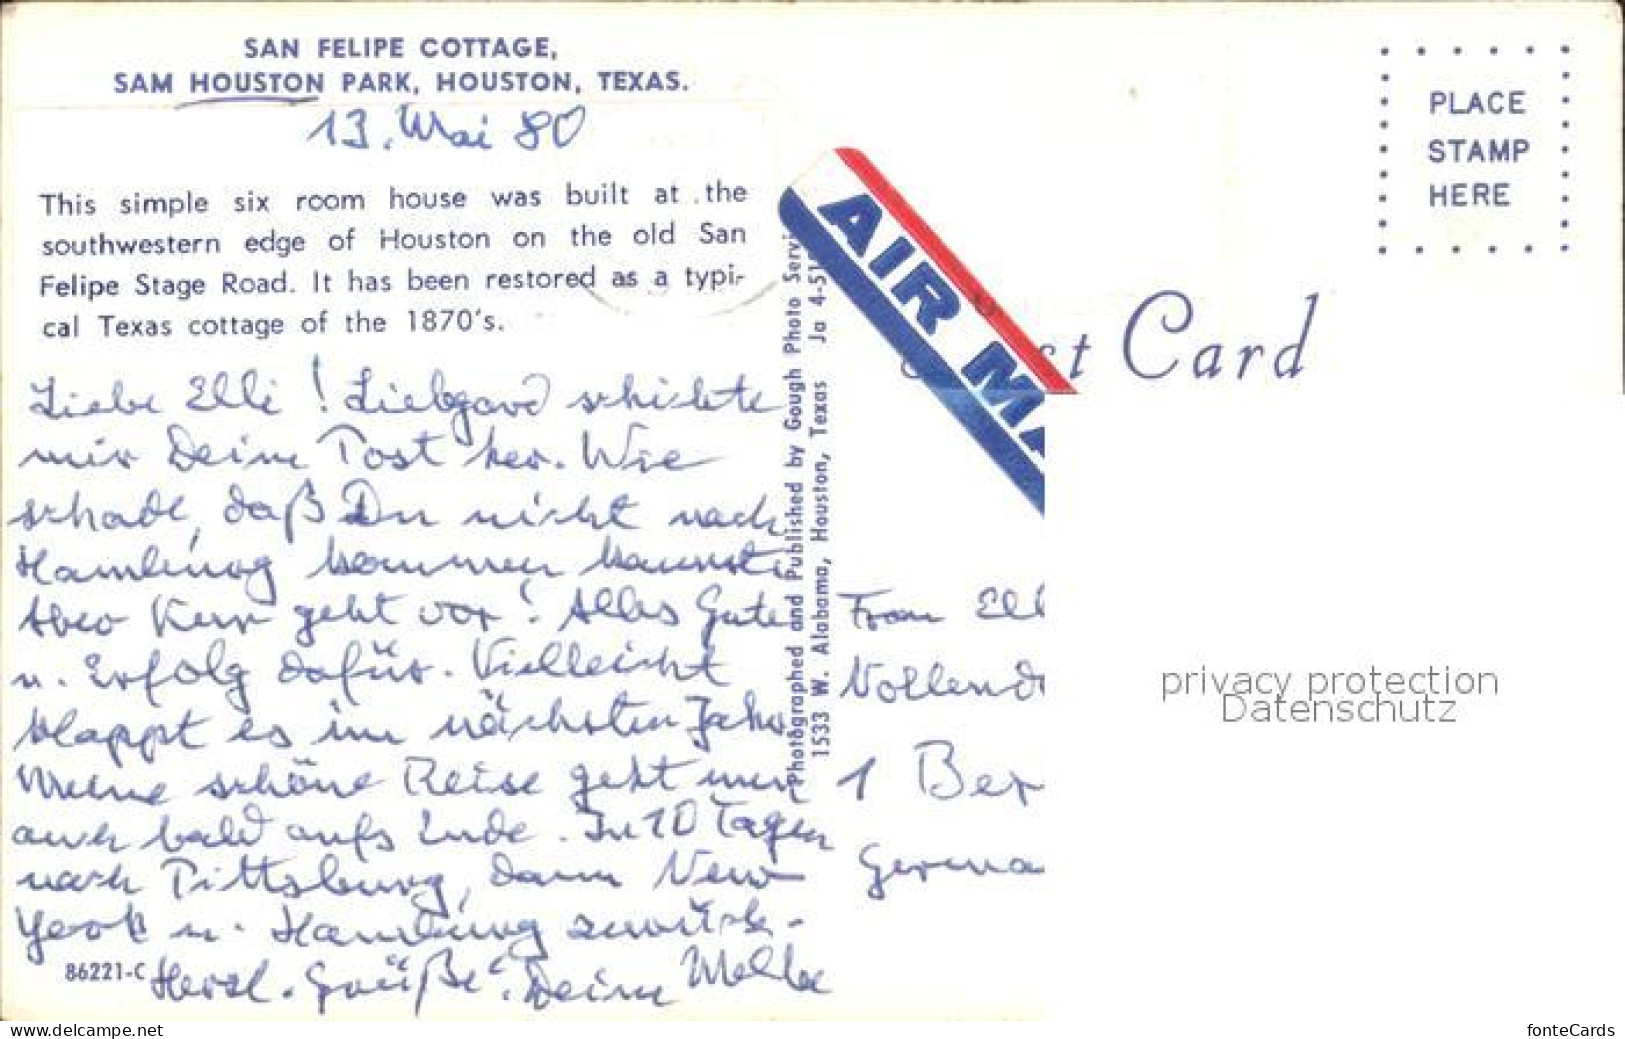 SAN FELIPE COTTAGE,
SAM HOUSTON PARK, HOUSTON, TEXAS.
13. Mai 80
This simple six room house was built at the
southwestern edge of Houston on the old San
Felipe Stage Road. It has been restored as a typi-
cal Texas cottage of the 1870's.
Liebe Elli! Liebgard schickte
mir Deine Post her. Wie
schade, daß Du nicht nach
Hamburg kommen kannst.
Aber Kur geht vor! Alles Gute
u. Erfolg dafür. Vielleicht
klappt es im nächsten Jahr.
Meine schöne Reise geht nun
auch bald aufs Ende. In 10 Tagen
nach Pittsburg, dann New
York u. Hamburg zurück.
Herzl. Grüße! Deine
86221-C
Photographed and Published by Gough Photo Servi
1533 W. Alabama, Houston, Texas Ja 4-51
AIR MA
st Card
PLACE
STAMP
HERE
Frau Ell
1 Ber
Germa
privacy protection
Datenschutz
www.delcampe.net
fonteCards